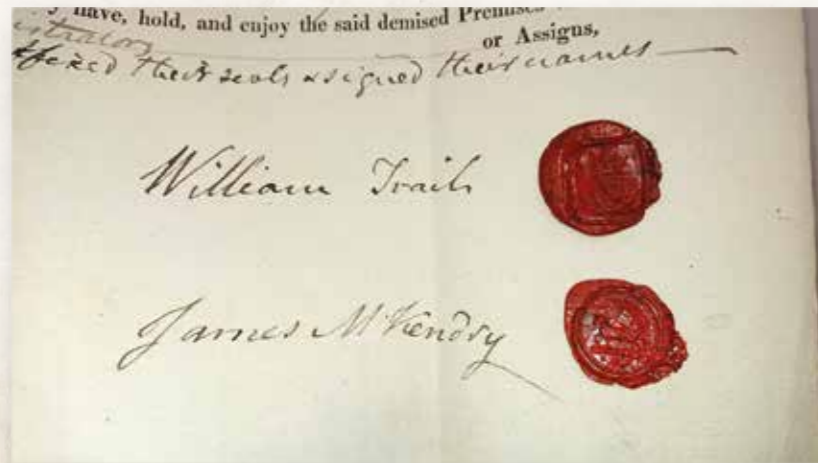 have, hold, and enjoy the said demised Premises
or Assigns,
affixed their seals & signed their names
William Trail
James McKendry